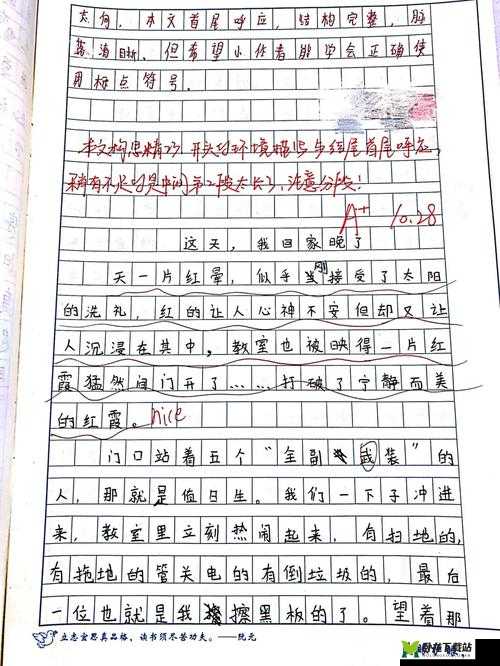 太何，本文首尾呼应，结构完整，脉
络清晰。但希望小作者能学会正确使
用标点符号。
本文构思精巧，开头的环境描写与结尾首尾呼应，
稍有不足的是中间第2段太长了，注意分段！
A+ 10.28
这天，我回家晚了
天一片红晕，似乎刚接受了太阳
的洗礼，红的让人心神不安但却又让
人沉浸在其中，教室也被映得一片红
霞猛然间门开了……打破了宁静而美
的红霞。nice
门口站着五个“全副武装”的
人，那就是值日生。我们一下子冲进
来，教室里立刻热闹起来，有扫地的，
有拖地的管关电的有倒垃圾的，最后
一位也就是我擦黑板的了。望着那
立志宜思真品格，读书须尽苦功夫。——阮元
卧龙下载站